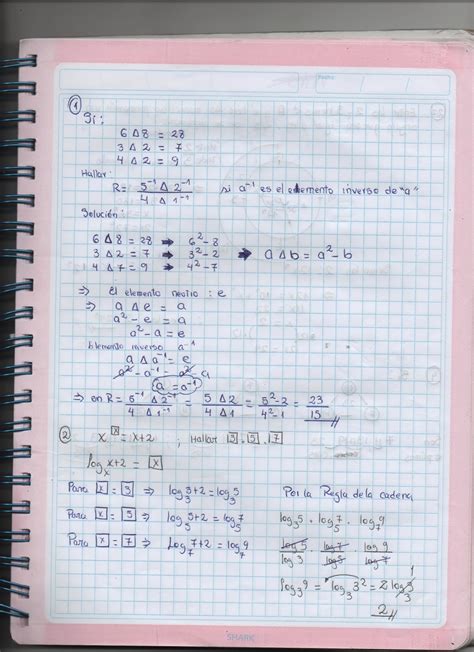 Fecha:
①
Si:
6 Δ 8 = 28
3 Δ 2 = 7
4 Δ 2 = 9
Hallar:
R = (5⁻¹ Δ 2⁻¹)/(4 Δ 1⁻¹) si a⁻¹ es el elemento inverso de "a"
Solución:
6 Δ 8 = 28 ➡ 6² - 8
3 Δ 2 = 7 ➡ 3² - 2 ➡ a Δ b = a² - b
4 Δ 7 = 9 ➡ 4² - 7
⇒ El elemento neutro: e
⇒ a Δ e = a
a² - e = a
a² - a = e
Elemento inverso a⁻¹
a Δ a⁻¹ = e
a² - a⁻¹ = a² - a
a = a⁻¹
⇒ en R = (5⁻¹ Δ 2⁻¹)/(4 Δ 1⁻¹) = (5 Δ 2)/(4 Δ 1) = (5² - 2)/(4² - 1) = 23/15
② x^[x] = x+2 ; Hallar [3] . [5] . [7]
logₓ x+2 = [x]
Para [x] = [3] ⇒ log₃ 3+2 = log₃ 5
Para [x] = [5] ⇒ log₅ 5+2 = log₅ 7
Para [x] = [7] ⇒ Log₇ 7+2 = log₇ 9
Por la Regla de la cadena
log₃ 5 . log₅ 7 . log₇ 9
log 5/log 3 . log 7/log 5 . log 9/log 7
log₃ 9 = log₃ 3² = 2 log₃ 3 1
2
SHARK